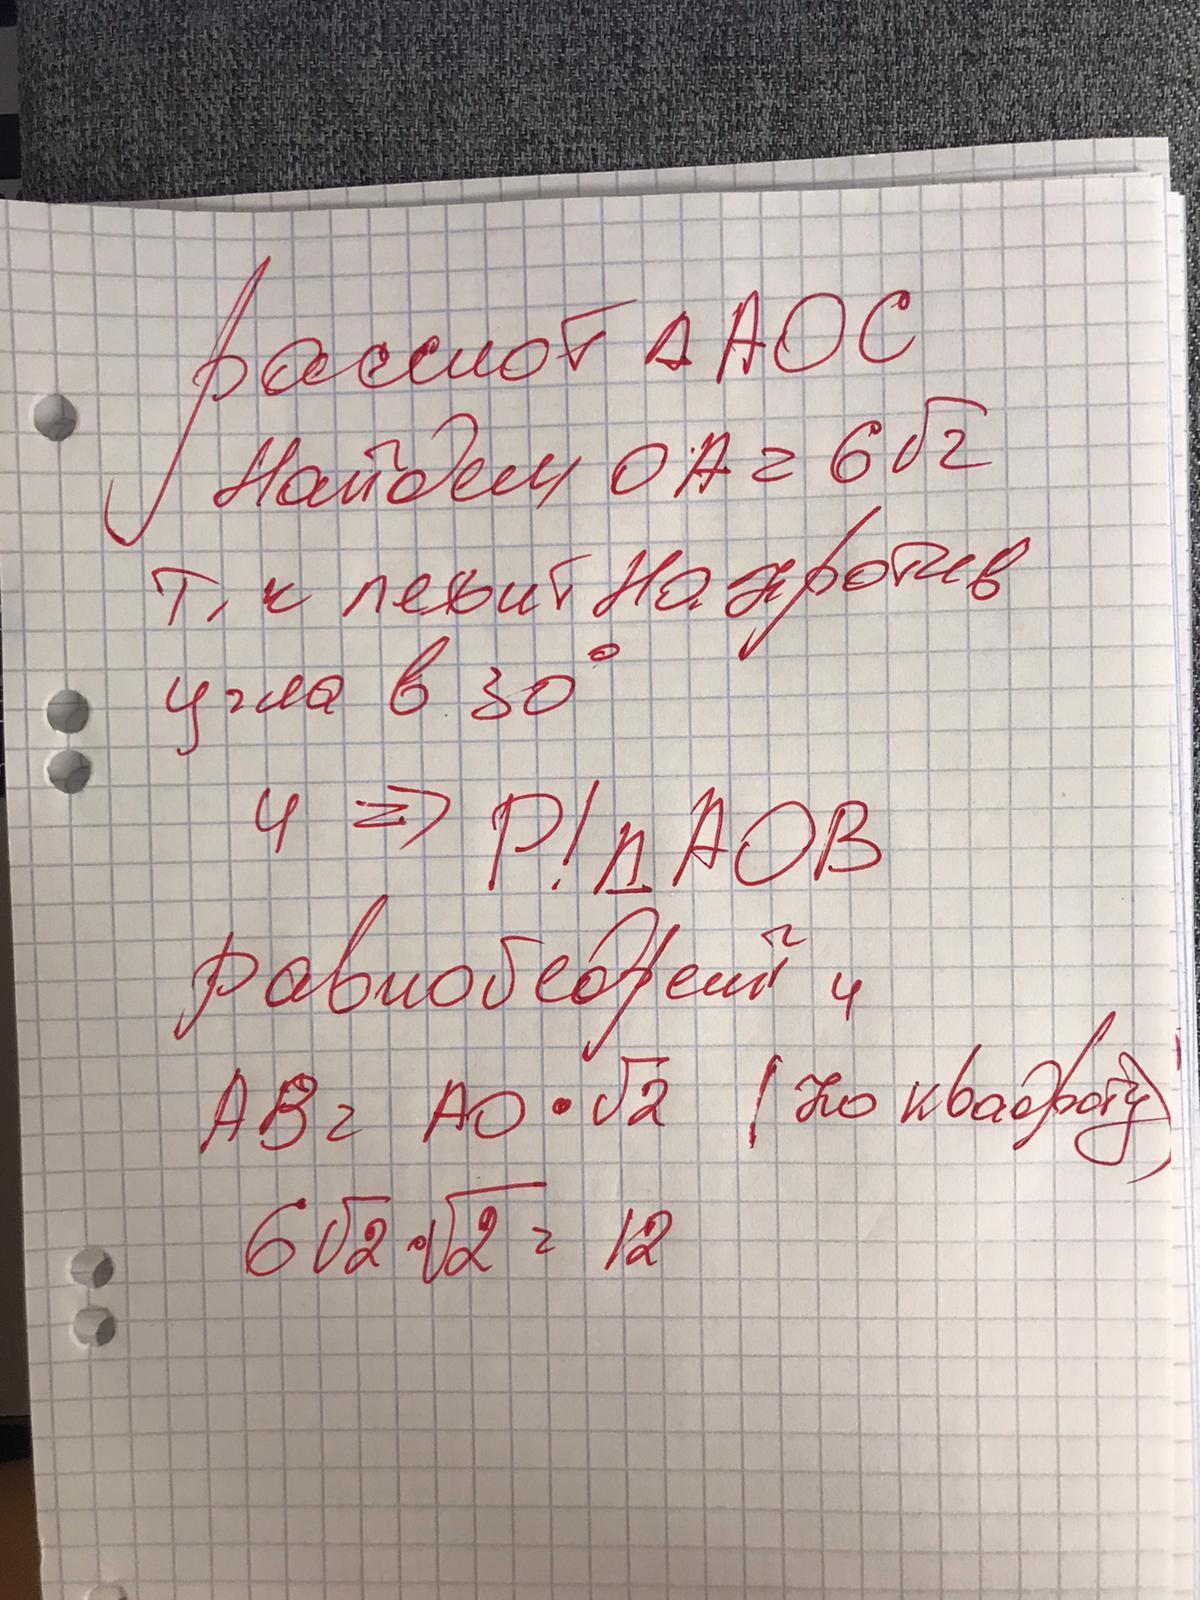 рассмот ΔAOC
Найдем OA = 6√2
т.к лежит напротив
угла в 30°
и => P! Δ AOB
равнобедрен й и
AB = AO · √2 (по квадрату)
6√2 · √2 = 12